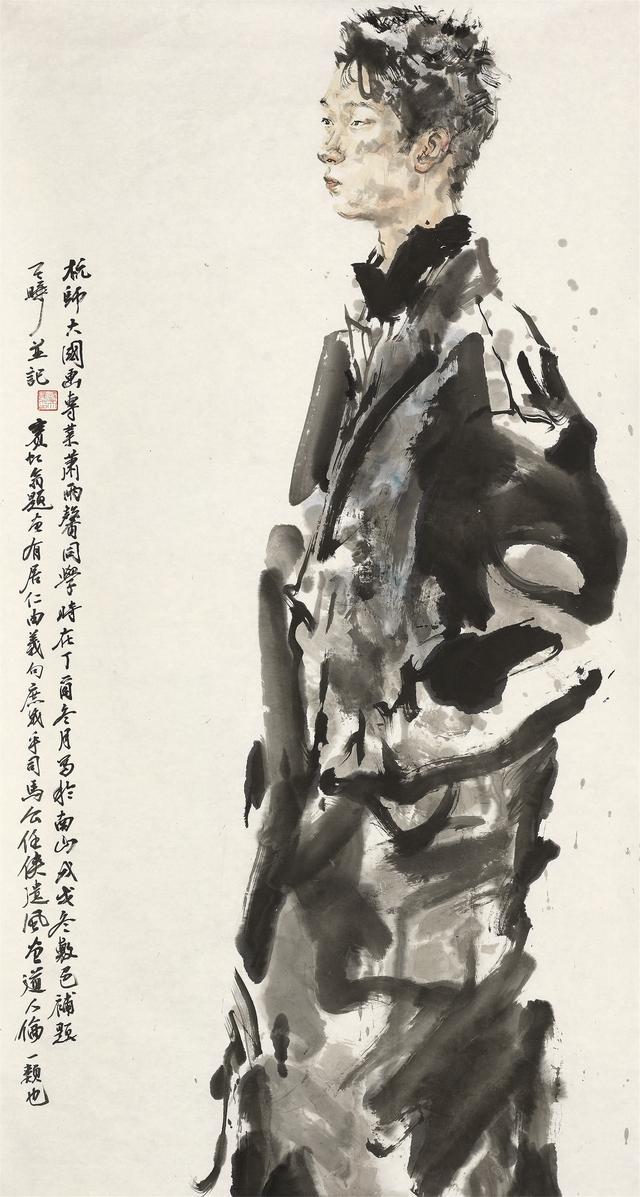 杭師大國畫專業蕭雨馨同學時在丁酉冬月寫於南山戊戌冬敷色補題
曄並記
賓虹翁題畫有居仁由義句庶幾乎司馬公任俠遺風畫道人倫一類也